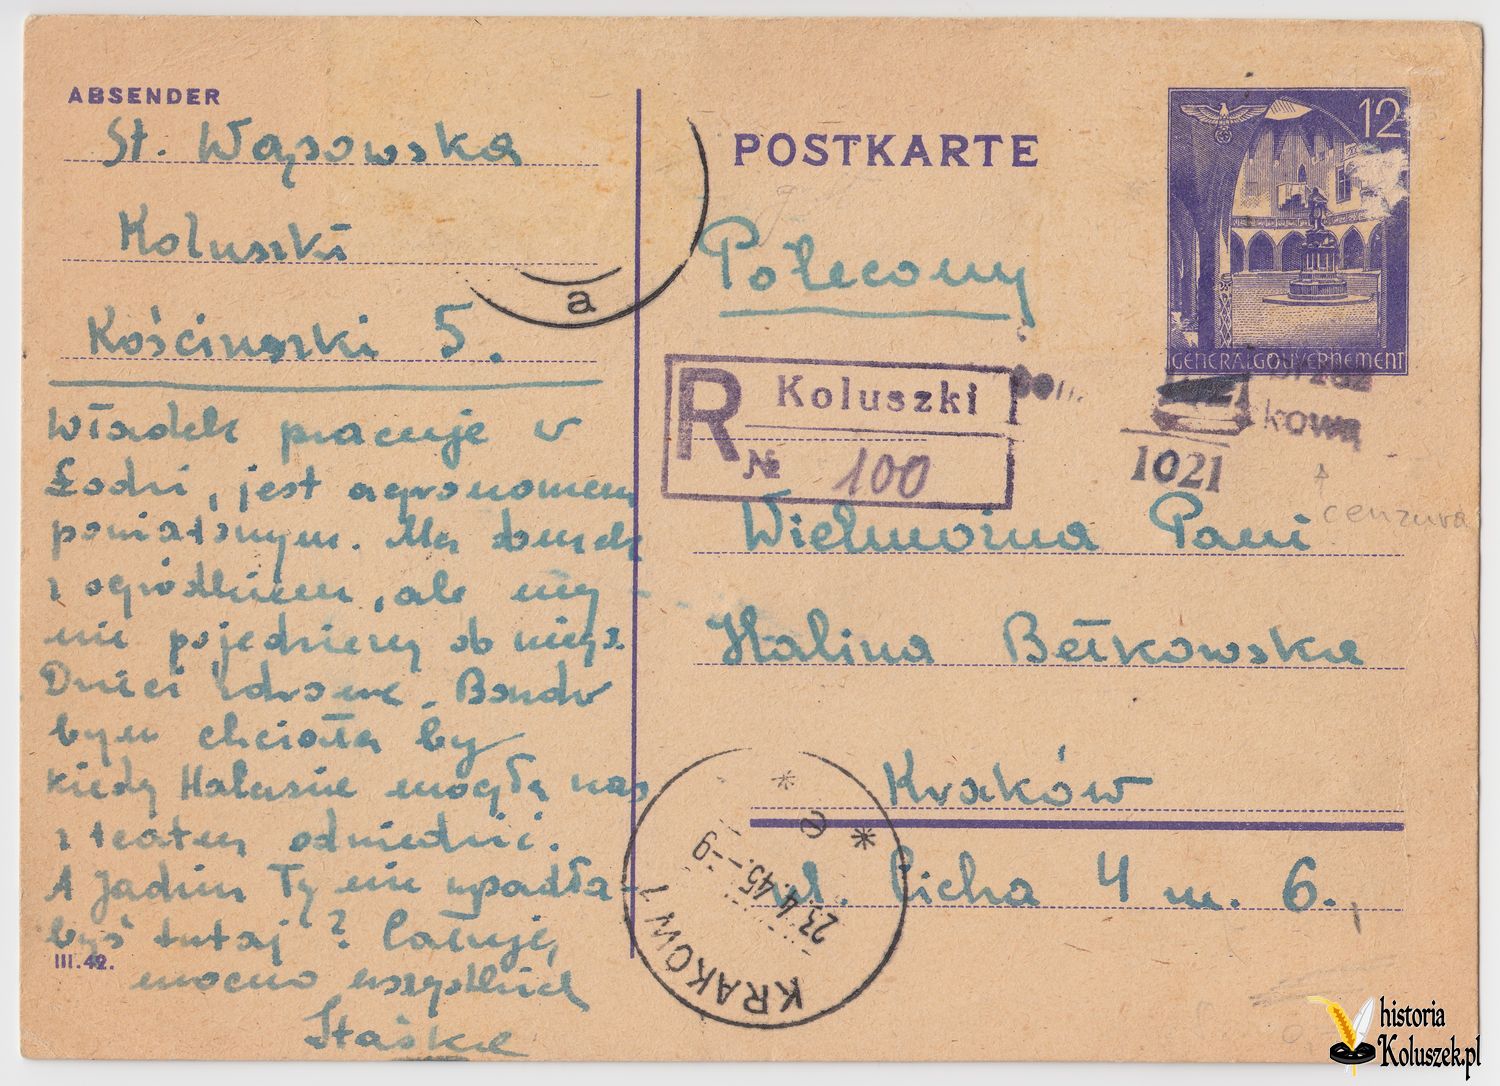 ABSENDER
St. Wąsowska
Koluszki
Kościuszki 5.
Władek pracuje w
Łodzi, jest agronomem
powiatowym. Ma domek
z ogródkiem, ale my
nie pojedziemy do niego.
Dzieci zdrowe. Bardzo
bym chciała by
kiedy Halusie mogła nas
z teatru odwiedzić.
A Jadziu Ty nie wpadła-
byś tutaj? Całuję,
mocno wszystkich
Staśka
III.42.
POSTKARTE
Polecony
12
GENERALGOUVERNEMENT
a
R Koluszki
№ 100
1021
kową
cenzura
Wielmożna Pani
Halina Bełkowska
Kraków
ul. Cicha 4 m. 6.
KRAKÓW 1
23.4.45.--9
e
historia
Koluszek.pl